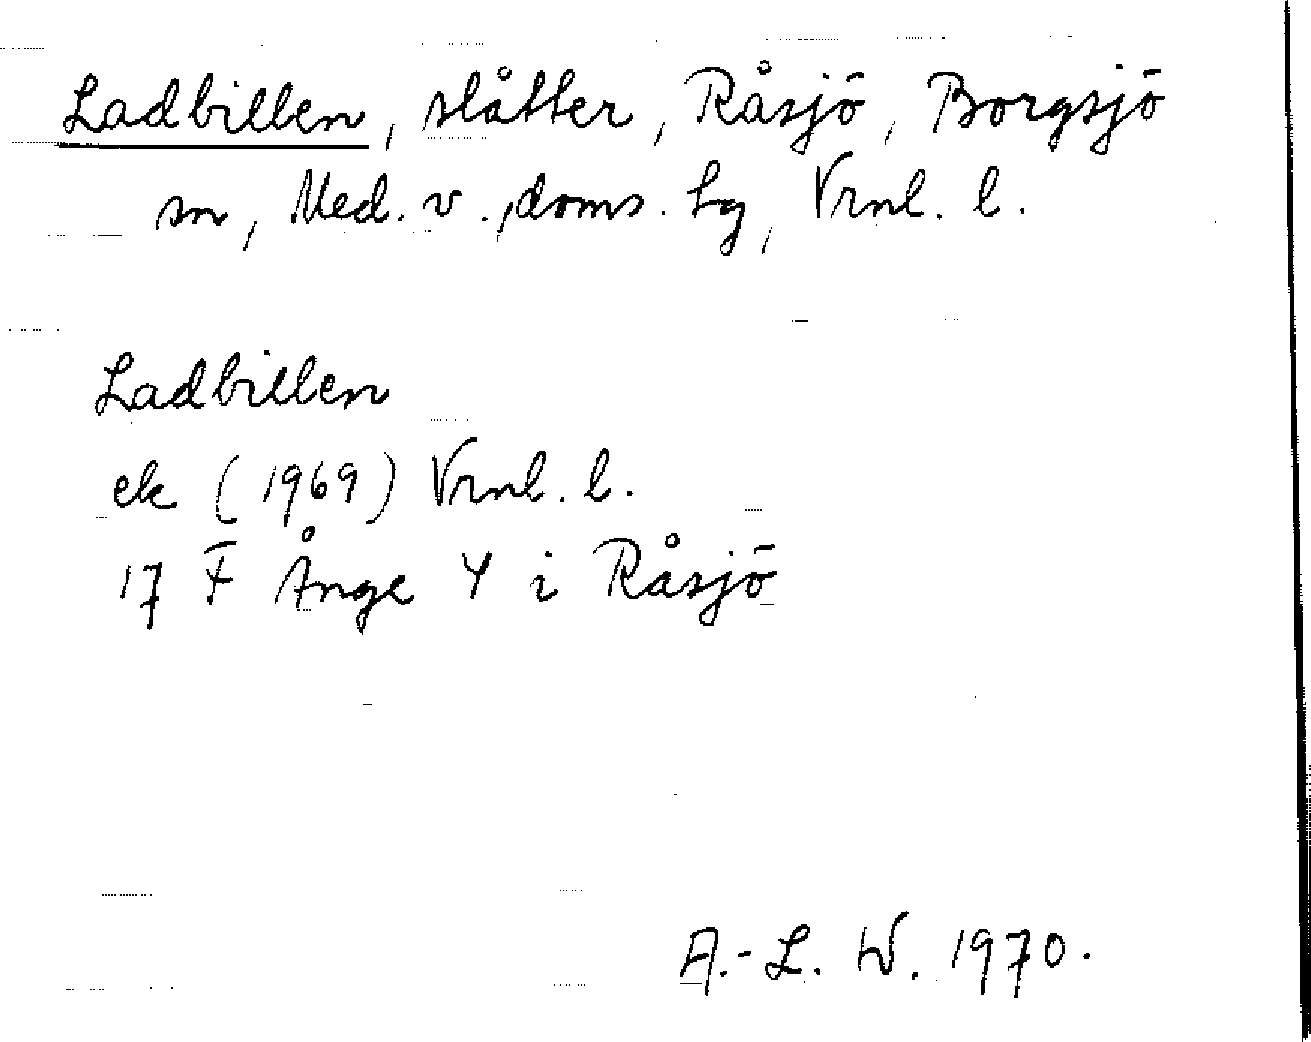 Ladbillen, slåtter, Råsjö, Borgsjö
sn, Med. v., doms. hg, Vrnl. l.
Ladbillen
ek (1969) Vrnl. l.
17 F Ånge Y i Råsjö
A.-L. W. 1970.